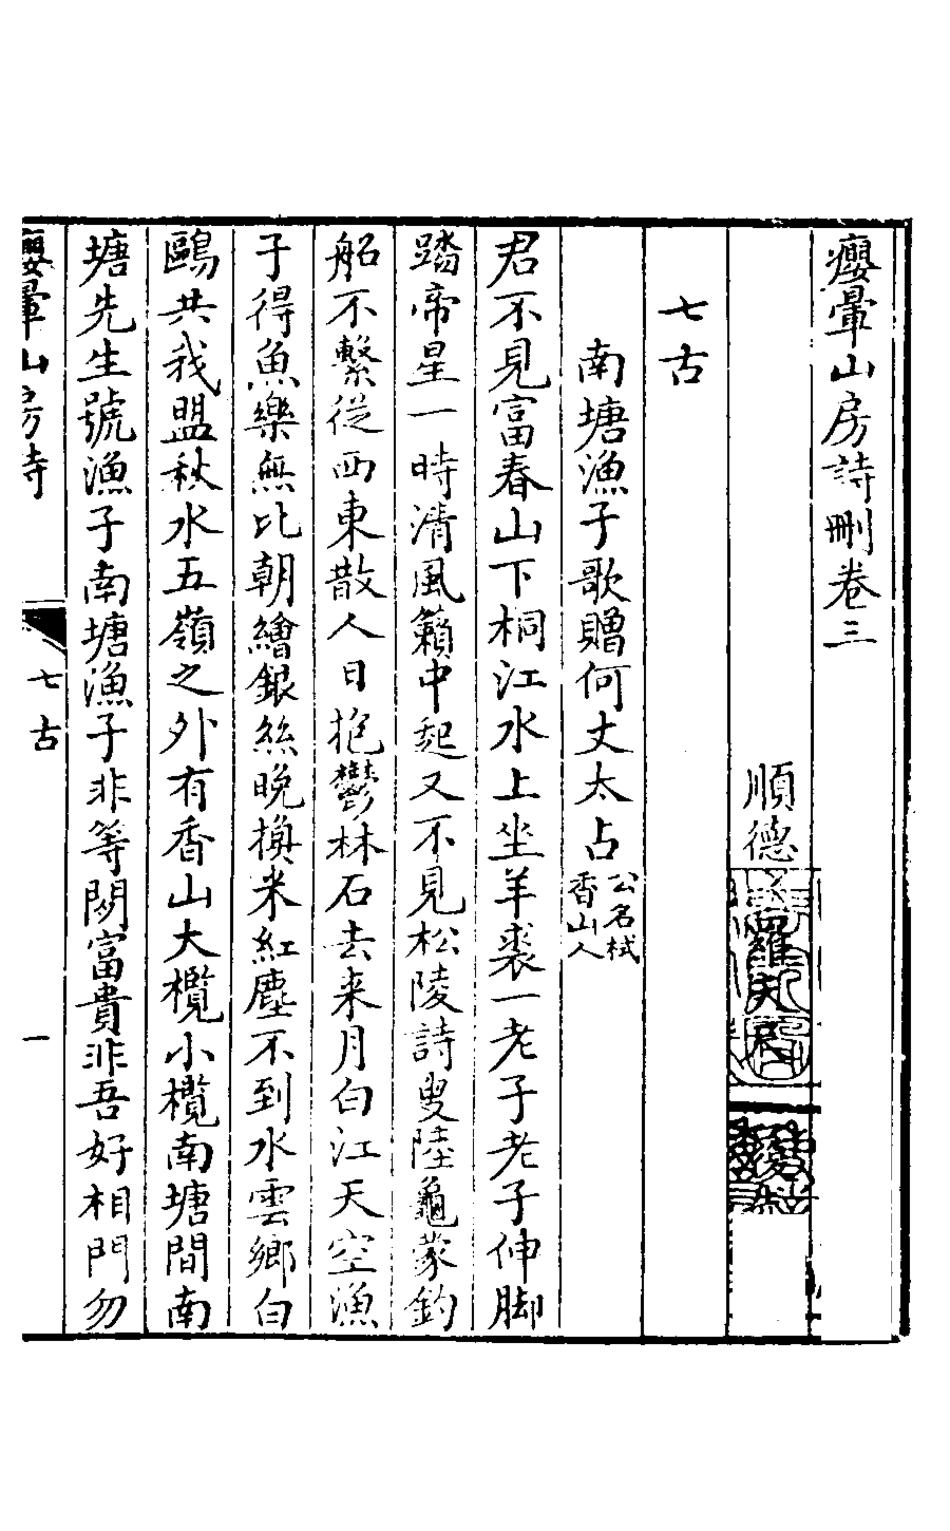 癭暈山房詩刪卷三
順德羅天尺
七古
南塘漁子歌贈何丈太占公名栻香山人
君不見富春山下桐江水上坐羊裘一老子老子伸脚
踏帝星一時清風籟中起又不見松陵詩叟陸龜蒙釣
船不繫從西東散人日抱鬱林石去来月白江天空漁
子得魚樂無比朝繪銀絲晚換米紅塵不到水雲鄉白
鷗共我盟秋水五嶺之外有香山大欖小欖南塘間南
塘先生號漁子南塘漁子非等閑富貴非吾好相門勿
癭暈山房詩
七古
一